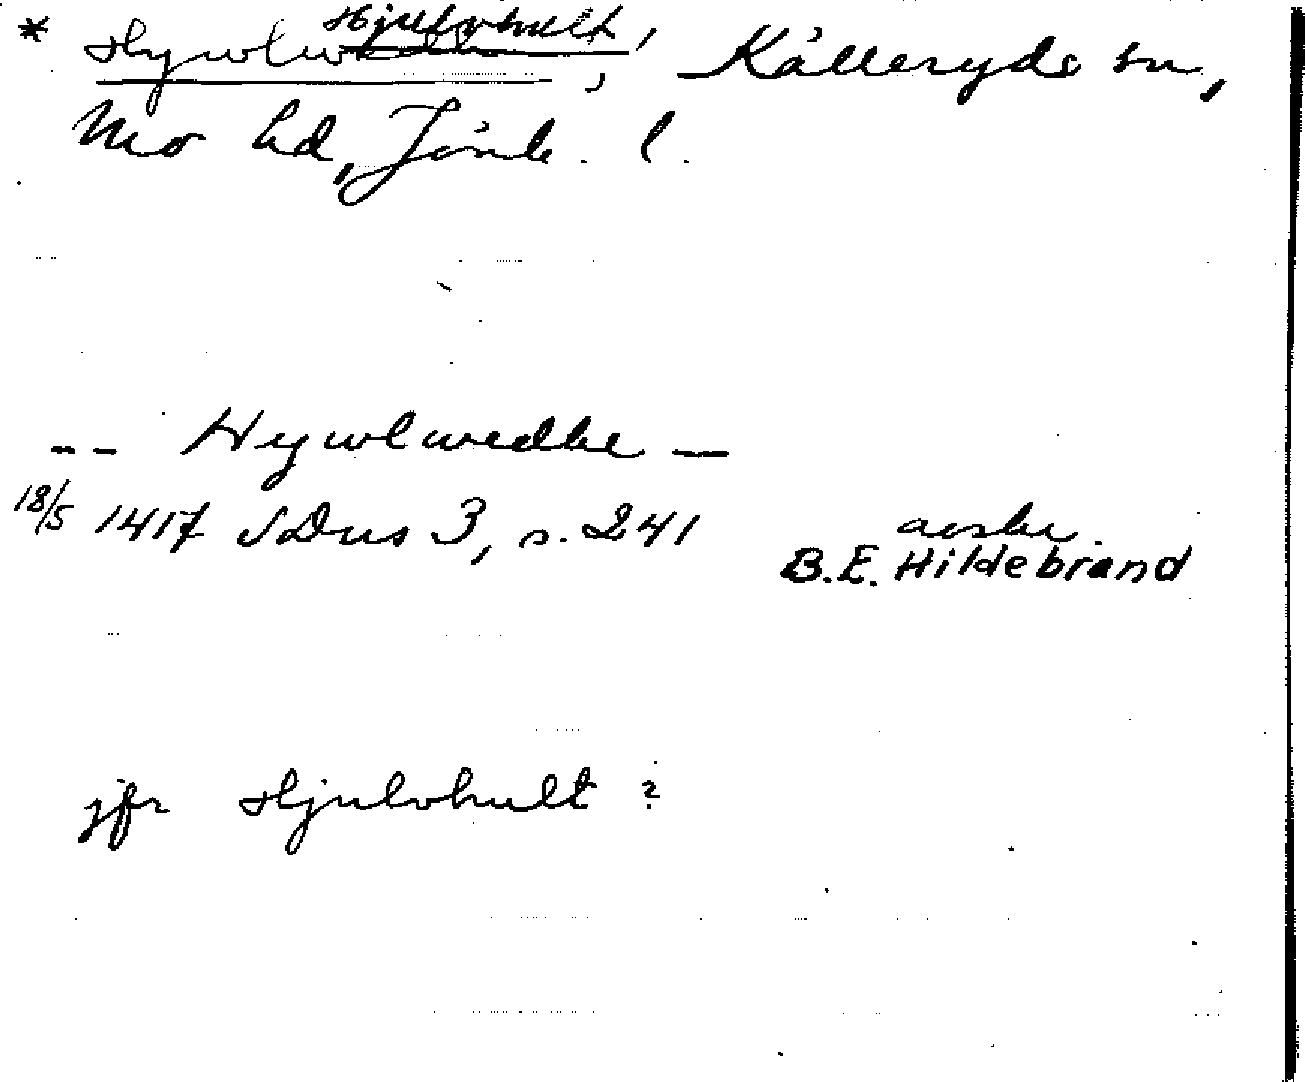 * Hjulvhult, Kålleryds sn,
Mo hd, Jönk. l.
-- Hywlwedhe —
18/5 1417 SDns 3, s. 241 avskr.
B.E. Hildebrand
jfr Hjulvhult ?